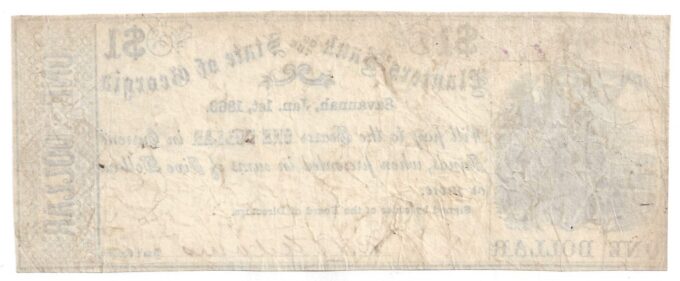 $1
$1
Planters' Bank of the State of Georgia
Savannah, Jan. 1st, 1863.
Will pay to the Bearer ONE DOLLAR in Current
Funds, when presented in sums of Five Dollars
or more.
Signed by order of the Board of Directors.
ONE DOLLAR
ONE DOLLAR